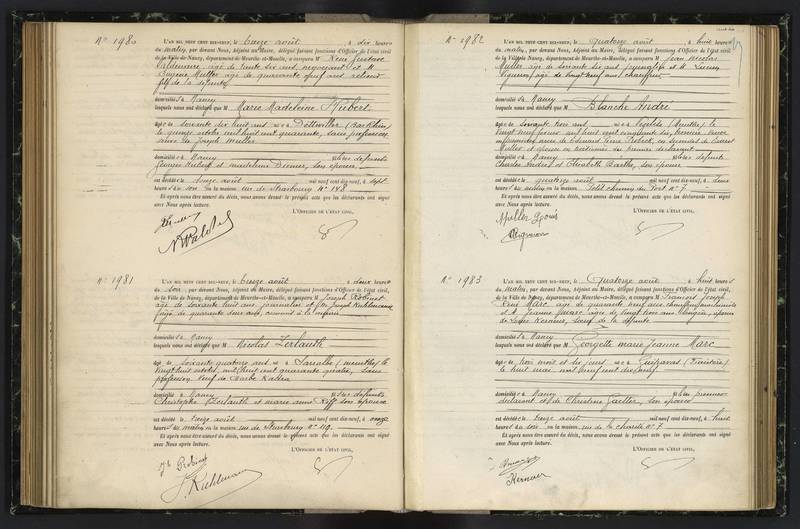 No 1980
L'AN MIL NEUF CENT DIX-NEUF, le treize août à dix heures
du matin, par devant Nous, Adjoint au Maire, délégué faisant fonctions d'Officier de l'état civil,
de la Ville de Nancy, département de Meurthe-et-Moselle, a comparu M René Gustave
âgé de trente six ans, négociant et M
Eugène Muller âgé de quarante neuf ans
fils de la défunte
domiciliés à Nancy
lesquels nous ont déclaré que M Marie Madeleine Siebert
âgée de soixante dix huit ans née à Dettwiller (Bas Rhin)
le quinze octobre mil huit cent quarante, sans profession
veuve de Joseph Muller
domiciliée à Nancy fille de défunts
Georges Siebert et Madeleine Diemer, son épouse
est décédée le treize août mil neuf cent dix-neuf, à sept
heures du soir en la maison rue de Strasbourg No 148
Et après nous être assuré du décès, nous avons dressé le présent acte que les déclarants ont signé
avec Nous après lecture.
L'OFFICIER DE L'ÉTAT CIVIL,
No 1981
L'AN MIL NEUF CENT DIX-NEUF, le treize août à deux heures
du soir, par devant Nous, Adjoint au Maire, délégué faisant fonctions d'Officier de l'état civil,
de la Ville de Nancy, département de Meurthe-et-Moselle, a comparu M Joseph Robinet
âgé de soixante huit ans journalier et M Joseph Kuhlmann
âgé de quarante deux ans,
domiciliés à Nancy
lesquels nous ont déclaré que M Nicolas Zerlauth
âgé de soixante quatorze ans né à Sarralbe (Meurthe) le
vingt huit octobre, mil huit cent quarante quatre, sans
profession veuf de Barbe
domicilié à Nancy fils de défunts
Christophe Zerlauth et Marie Anne Riff son épouse
est décédé le treize août mil neuf cent dix-neuf, à onze
heures du matin en la maison rue de Strasbourg No 119
Et après nous être assuré du décès, nous avons dressé le présent acte que les déclarants ont signé
avec Nous après lecture.
L'OFFICIER DE L'ÉTAT CIVIL,
J. Kuhlmann
No 1982
L'AN MIL NEUF CENT DIX-NEUF, le quatorze août à huit heures
du matin, par devant Nous, Adjoint au Maire, délégué faisant fonctions d'Officier de l'état civil,
de la Ville de Nancy, département de Meurthe-et-Moselle, a comparu M Jean Nicolas
Muller âgé de soixante six ans journalier et M Lucien
Vigneron, âgé de vingt neuf ans chauffeur
domiciliés à Nancy
lesquels nous ont déclaré que M Blanche André
âgée de soixante trois ans née à (Meurthe), le
vingt neuf février mil huit cent cinquante six,
et épouse en troisièmes du premier déclarant
domiciliée à Nancy fille de défunts
Charles André et Elisabeth son épouse
est décédée le quatorze août mil neuf cent dix-neuf, à deux
heures du matin en la maison Petit chemin du Port No 7
Et après nous être assuré du décès, nous avons dressé le présent acte que les déclarants ont signé
avec Nous après lecture.
L'OFFICIER DE L'ÉTAT CIVIL,
Muller Louis
Vigneron
No 1983
L'AN MIL NEUF CENT DIX-NEUF, le quatorze août à huit heures
du matin, par devant Nous, Adjoint au Maire, délégué faisant fonctions d'Officier de l'état civil,
de la Ville de Nancy, département de Meurthe-et-Moselle, a comparu M François Joseph
René Marc, âgé de quarante neuf ans
et Marc âgée de vingt trois ans épouse
de Louis Kerneur, sœur de la défunte
domiciliés à Nancy
lesquels nous ont déclaré que M Georgette Marie Jeanne Marc
âgée de trois mois et des jours née à Guipavas (Finistère)
le huit mai mil neuf cent dix neuf
domiciliée à Nancy fille du premier
déclarant et de Claudine son épouse
est décédée le treize août mil neuf cent dix-neuf, à huit
heures du soir en la maison rue de la Charité No 7
Et après nous être assuré du décès, nous avons dressé le présent acte que les déclarants ont signé
avec Nous après lecture.
L'OFFICIER DE L'ÉTAT CIVIL,
Kerneur